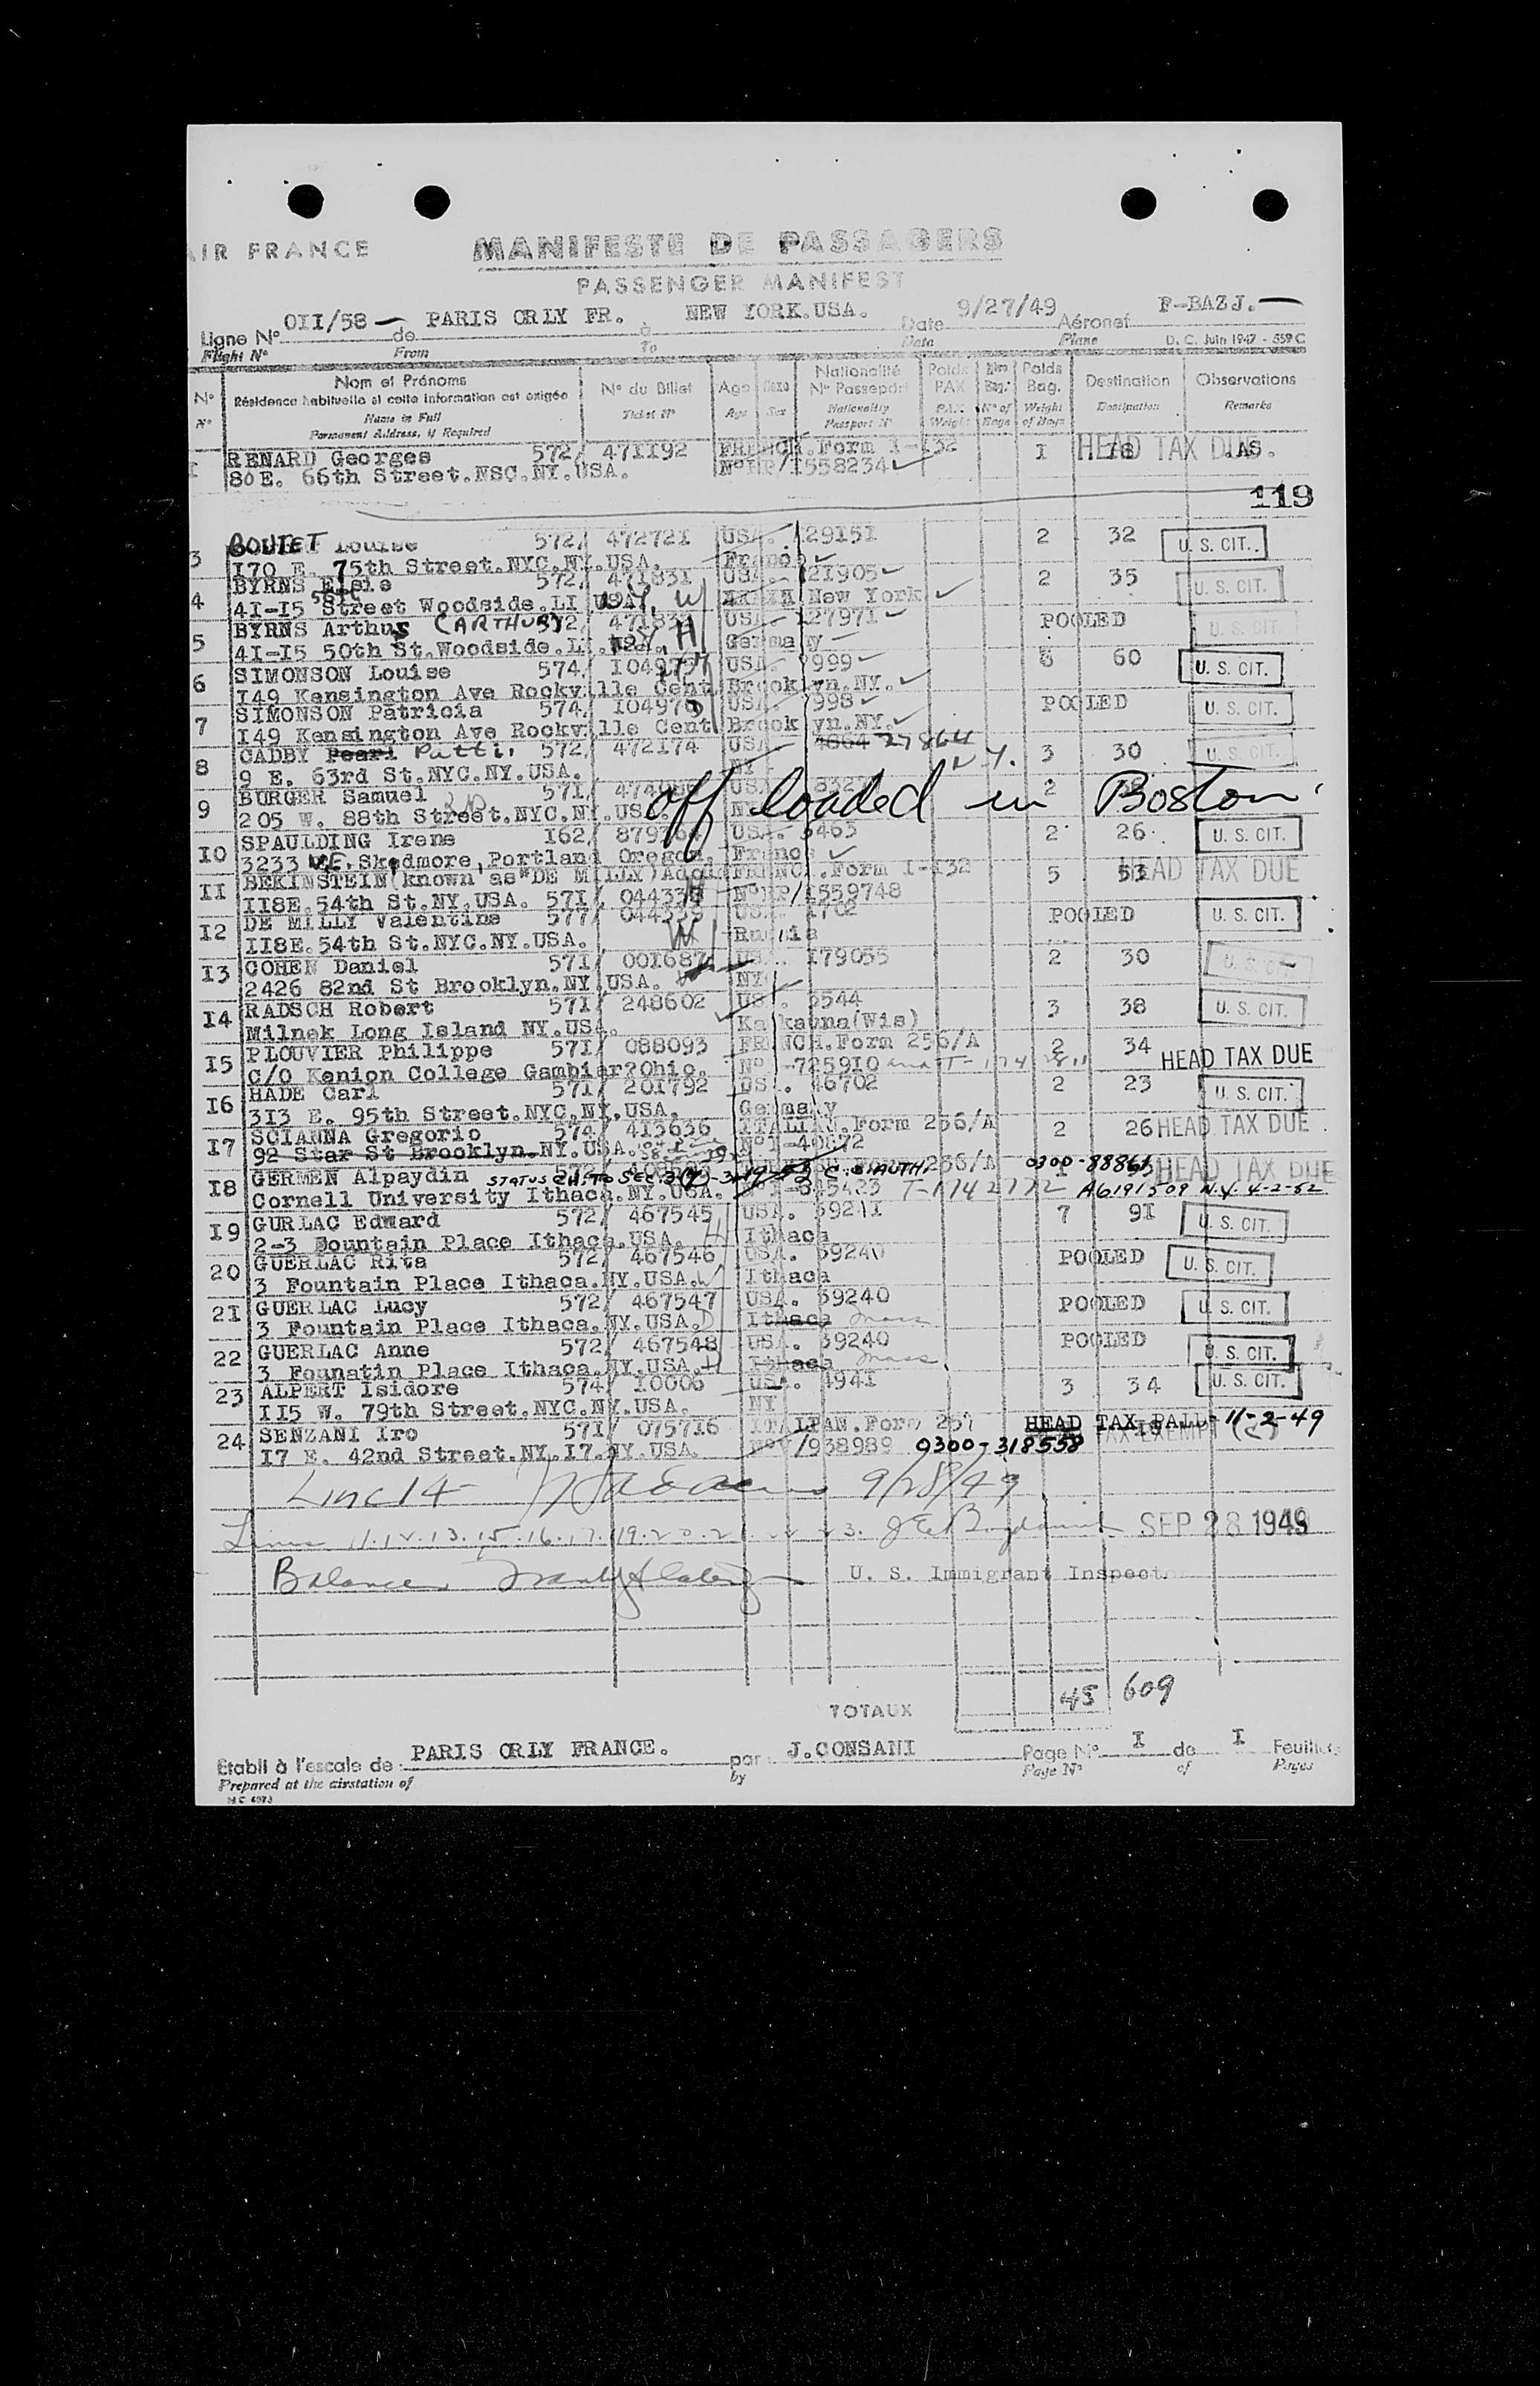 AIR FRANCE MANIFESTE DE PASSAGERS
PASSENGER MANIFEST
Ligne N° OII/58 — de PARIS ORLY FR. à NEW YORK.USA. Date 9/27/49 Aéronef F-BAZJ.—
Flight N° From To Date Plane D. C. Juin 1947 - 559 C
N° Nom et Prénoms N° du Billet Age Sexe Nationalité Poids Nbre Poids Destination Observations
Résidence habituelle si cette information est exigée N° Passeport PAX Bag. Bag.
N° Name in Full Ticket N° Age Sex Nationality PAX N° of Weight Destination Remarks
Permanent Address, if Required Passport N° Weight Bags of Bags
I RENARD Georges 572/ 471192 FRENCH.Form I-132 I HEAD TAX DUE .AS.
80E. 66th Street.NSC.NY.USA. /I558234
119
3 BOUTET Louise 572/ 472721 USA. 129151 2 32 U. S. CIT.
170 E. 75th Street.NYC.NY.USA. France
4 BYRNS Elsie 572/ 471831 USA. 121905 2 35 U. S. CIT.
41-15 Street Woodside.LI W New York
5 BYRNS Arthus (ARTHUR) USA 127971 POOLED U. S. CIT.
41-15 50th St.Woodside.L. H Germany
6 SIMONSON Louise 574/ USA. 999 60 U. S. CIT.
149 Kensington Ave Rockville Cent Brooklyn.NY.
7 SIMONSON Patricia 574/ USA. 998 POOLED U. S. CIT.
149 Kensington Ave Rockville Cent Brooklyn.NY.
8 CADBY Pearl Patti. 572/ 472174 USA 4864 27864 3 30 U. S. CIT.
9 E. 63rd St.NYC.NY.USA. NY N.Y.
9 BURGER Samuel 571/ USA 2
205 W. 88th Street.NYC.NY.USA. off loaded in Boston
10 SPAULDING Irene 162/ USA. 5463 2 26 U. S. CIT.
3233 N.E. Skedmore,Portland Oregon. France
11 BEKINSTEIN(known as"DE MILLY)Adol FRENCH.Form I-132 5 53 HEAD TAX DUE
118E.54th St.NY.USA. 571/ /I559748
12 DE MILLY Valentine 577/ 044339 USA. 1702 POOLED U. S. CIT.
118E.54th St.NYC.NY.USA. W Russia
13 COHEN Daniel 571/ 001687 USA. 179055 2 30 U. S. CIT.
2426 82nd St Brooklyn.NY.USA. NYC
14 RADSCH Robert 571/ 248602 USA. 5544 3 38 U. S. CIT.
Milnek Long Island NY.USA. Kaukauna(Wis)
15 PLOUVIER Philippe 571/ 088093 FRENCH.Form 256/A 2 34 HEAD TAX DUE
C/O Kenion College Gambier?Ohio. N° -725910
16 HADE Carl 571/ 201792 USA. 46702 2 23 U. S. CIT.
313 E. 95th Street.NYC.NY.USA. Germany
17 SCIANNA Gregorio 574/ 413636 ITALIAN.Form 256/A 2 26 HEAD TAX DUE
92 Star St Brooklyn.NY.USA. N°I-40872
18 GERMEN Alpaydin STATUS CH. TO SEC. 3(7) C.O. AUTH. 256/A 0300-88861 HEAD TAX DUE
Cornell University Ithaca.NY.USA. T-1742772 A6191509 N.Y. 4-2-52
19 GURLAC Edward 572/ 467545 USA. 59241 7 91 U. S. CIT.
2-3 Fountain Place Ithaca.USA. H Ithaca
20 GUERLAC Rita 572/ 467546 USA. 59240 POOLED U. S. CIT.
3 Fountain Place Ithaca.NY.USA. W Ithaca
21 GUERLAC Lucy 572/ 467547 USA. 59240 POOLED U. S. CIT.
3 Fountain Place Ithaca.NY.USA. D Ithaca Mass
22 GUERLAC Anne 572/ 467548 USA. 59240 POOLED U. S. CIT.
3 Founatin Place Ithaca.NY.USA. Ithaca Mass
23 ALPERT Isidore 574/ 10006 USA. 4941 3 34 U. S. CIT.
115 W. 79th Street.NYC.NY.USA. NY
24 SENZANI Iro 571/ 075716 ITALIAN.Form 257 HEAD TAX 11-2-49
17 E. 42nd Street.NY.17.NY.USA. N°V/938989 0300-318558 TAX EXEMPT
Line 14 9/28/49
Lines 11.12.13.15.16.17.19.20.21 SEP 28 1949
Balance U. S. Immigrant Inspector
TOTAUX 45 609
Etabli à l'escale de PARIS ORLY FRANCE. par J.CONSANI Page N° I de I Feuillets
Prepared at the airstation of by Page N° of Pages